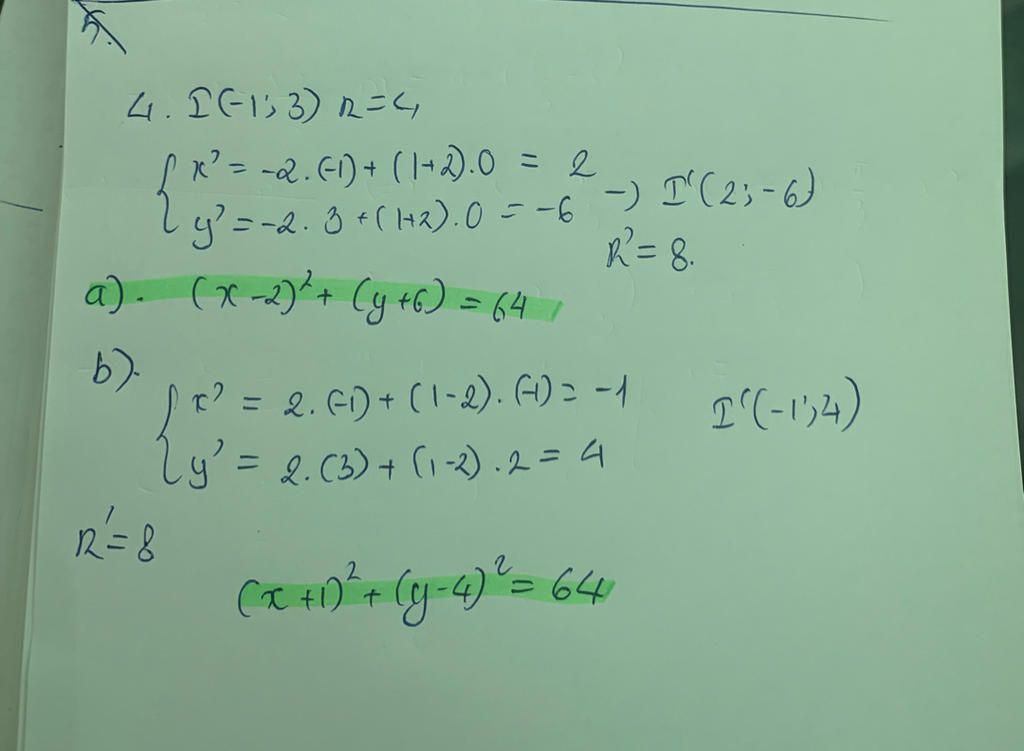 5.
4. I(-1; 3) R=4
{ x' = -2.(-1) + (1+2).0 = 2
{ y' = -2. 3 + (1+2).0 = -6 → I'(2; -6)
R' = 8.
a). (x-2)² + (y+6) = 64
b).
{ x' = 2.(-1) + (1-2).(-1) = -1
I'(-1; 4)
{ y' = 2.(3) + (1-2).2 = 4
R' = 8
(x+1)² + (y-4)² = 64